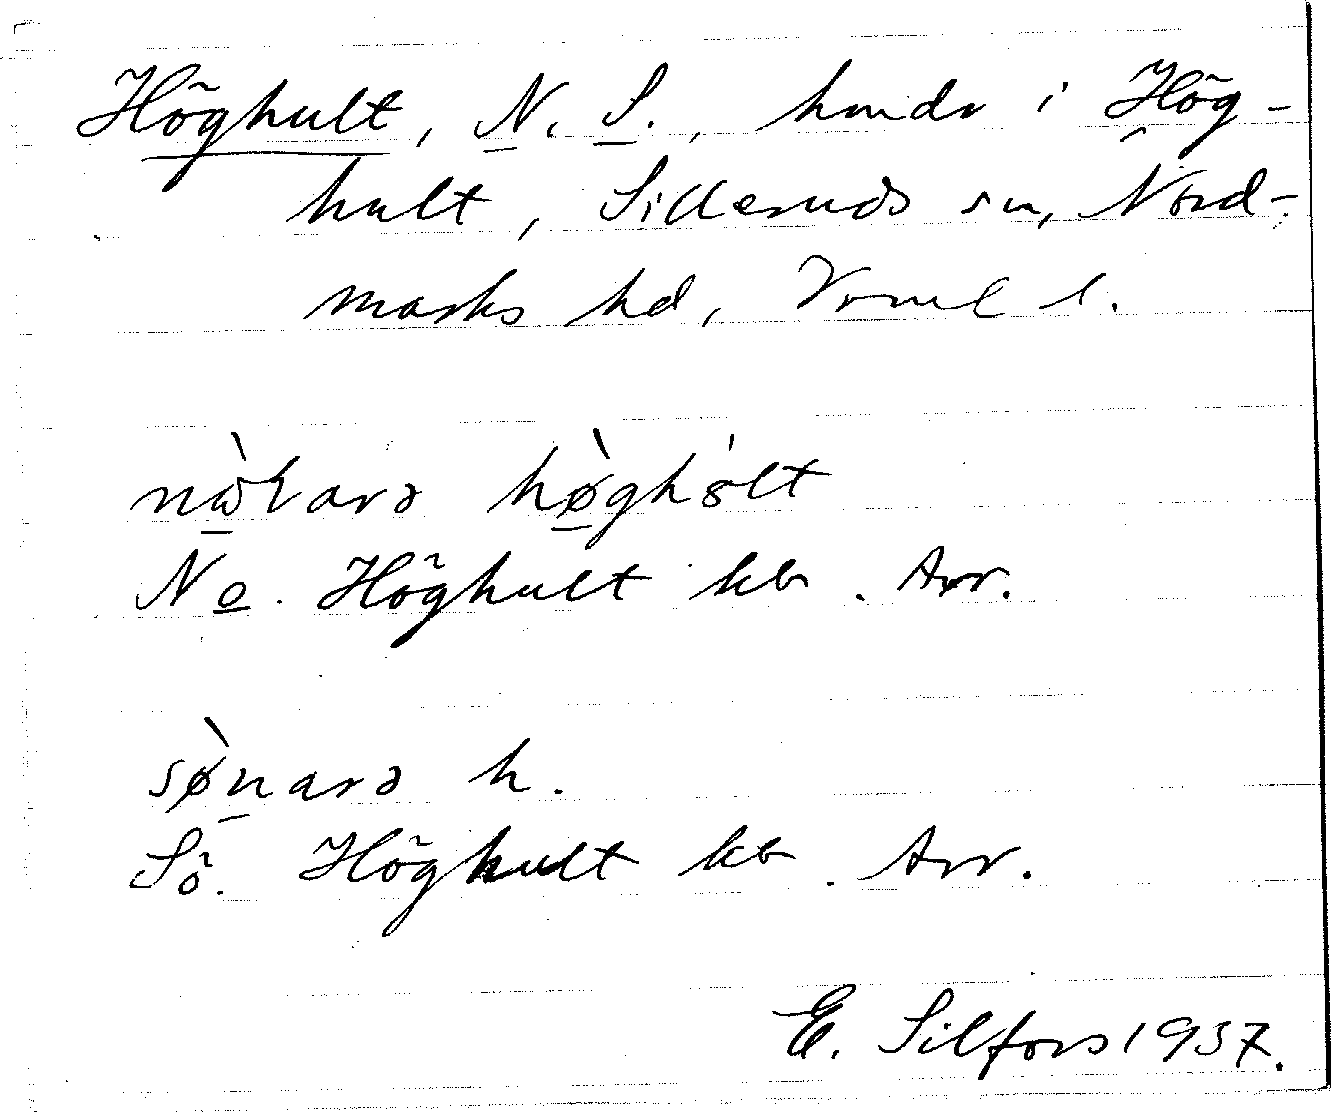 Höghult, N. S., hmdr i Hög-
hult, Silleruds sn, Nord-
marks hd, Vrml l.
nòɽarə hø̀ghòlt
No. Höghult kb. Arr.
sø̀narə h.
Sö. Höghult kb. Arr.
E. Silfors 1937.